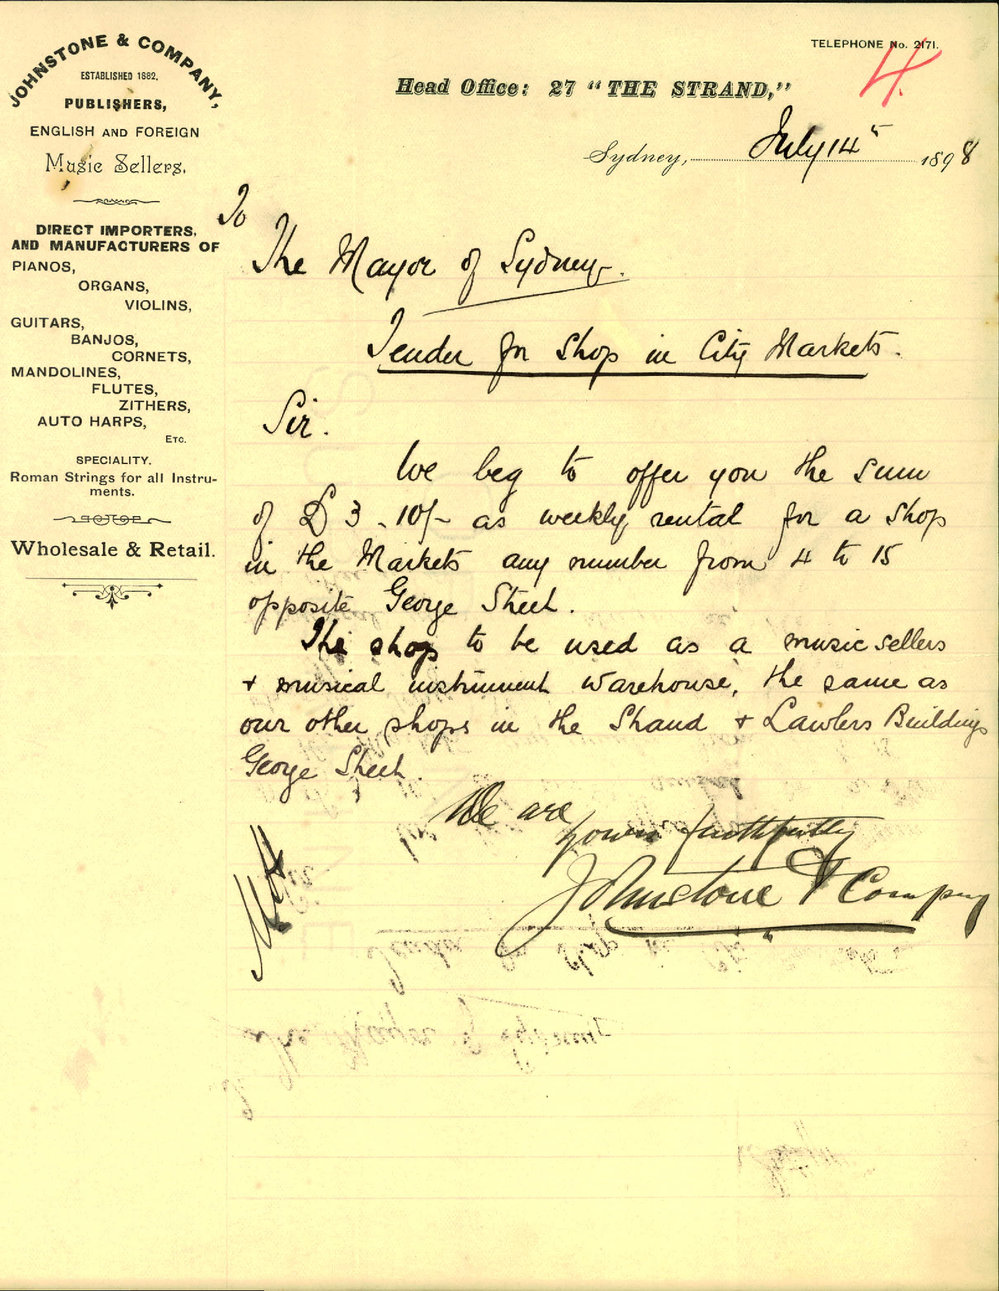 JOHNSTONE & COMPANY,
ESTABLISHED 1882,
PUBLISHERS,
ENGLISH AND FOREIGN
Music Sellers.
DIRECT IMPORTERS,
AND MANUFACTURERS OF
PIANOS,
ORGANS,
VIOLINS,
GUITARS,
BANJOS,
CORNETS,
MANDOLINES,
FLUTES,
ZITHERS,
AUTO HARPS,
ETC.
SPECIALITY.
Roman Strings for all Instru-
ments.
Wholesale & Retail.
TELEPHONE No. 2171.
4.
Head Office: 27 "THE STRAND,"
Sydney, July 14 1898
To
The Mayor of Sydney.
Tender for Shop in City Markets.
Sir.
We beg to offer you the sum
of £3-10/- as weekly rental for a shop
in the Markets any number from 4 to 15
opposite George Street.
The shop to be used as a music sellers
+ musical instrument warehouse, the same as
our other shops in the Strand + Lawlers Buildings
George Street.
We are
yours faithfully
Johnstone & Company